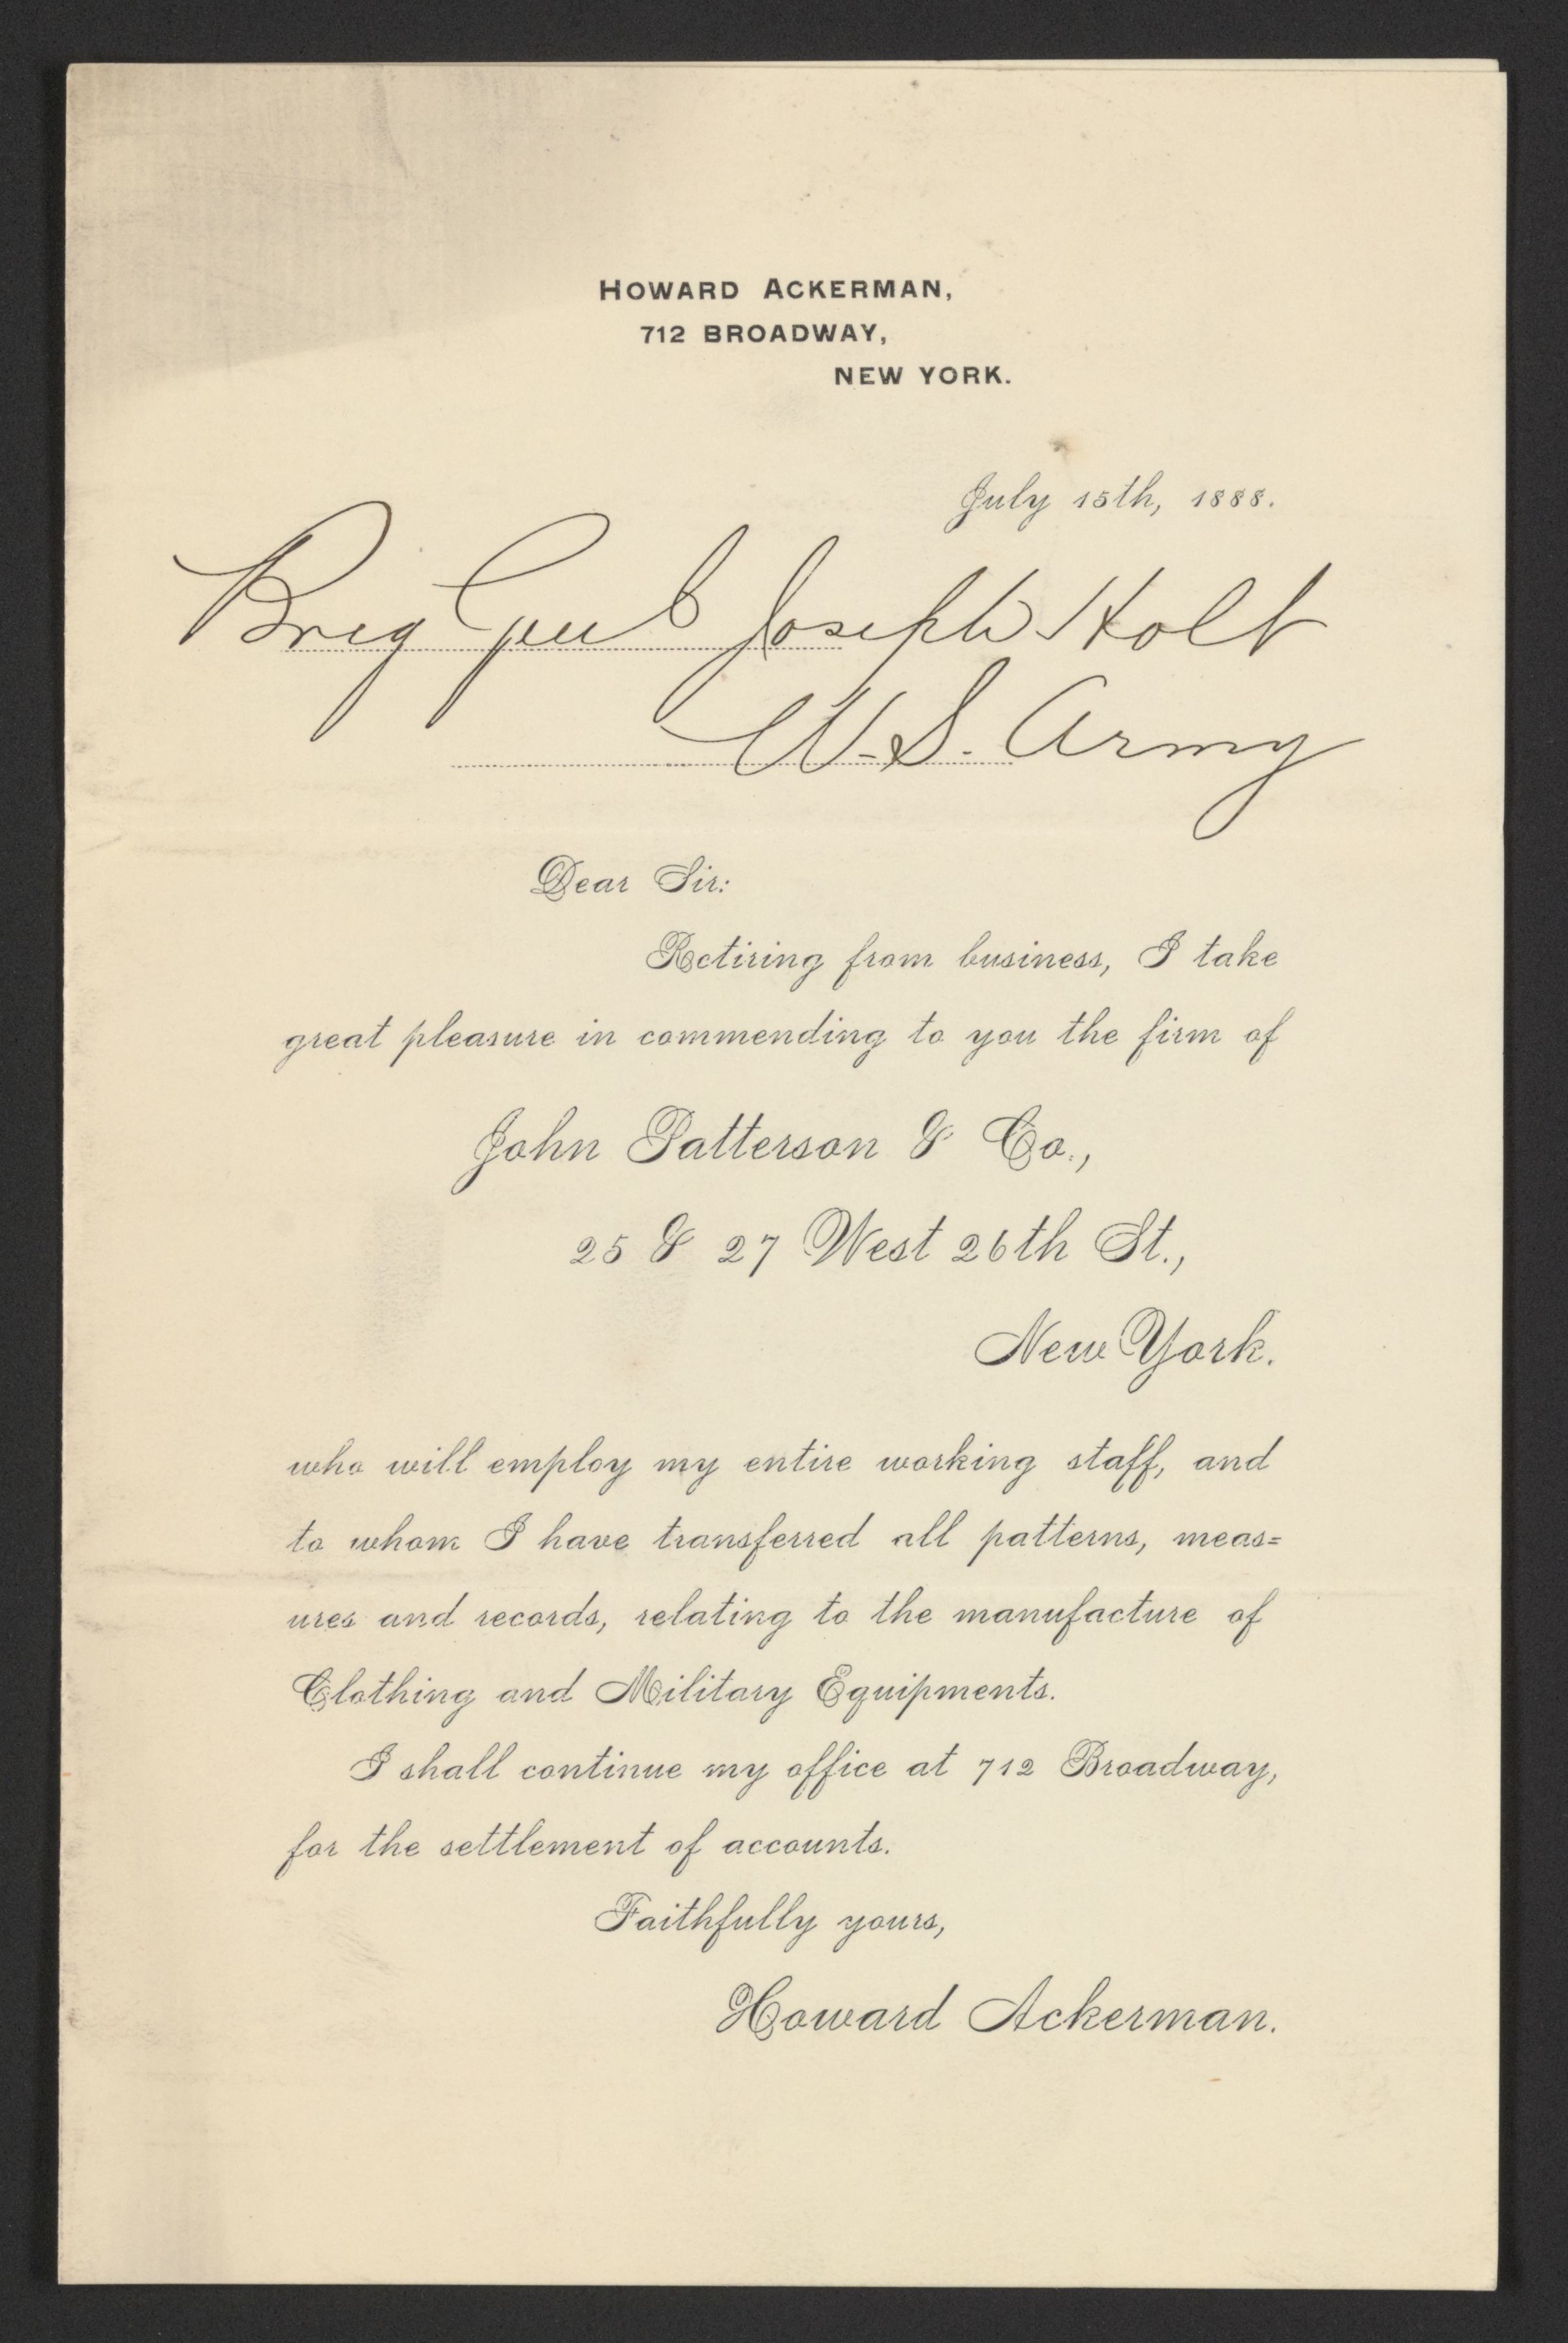 HOWARD ACKERMAN,
712 BROADWAY,
NEW YORK.
July 15th, 1888.
Brig Genl Joseph Holt
U.S. Army
Dear Sir:
Retiring from business, I take
great pleasure in commending to you the firm of
John Patterson & Co.,
25 & 27 West 26th St.,
New York.
who will employ my entire working staff, and
to whom I have transferred all patterns, meas=
ures and records, relating to the manufacture of
Clothing and Military Equipments.
I shall continue my office at 712 Broadway,
for the settlement of accounts.
Faithfully yours,
Howard Ackerman.